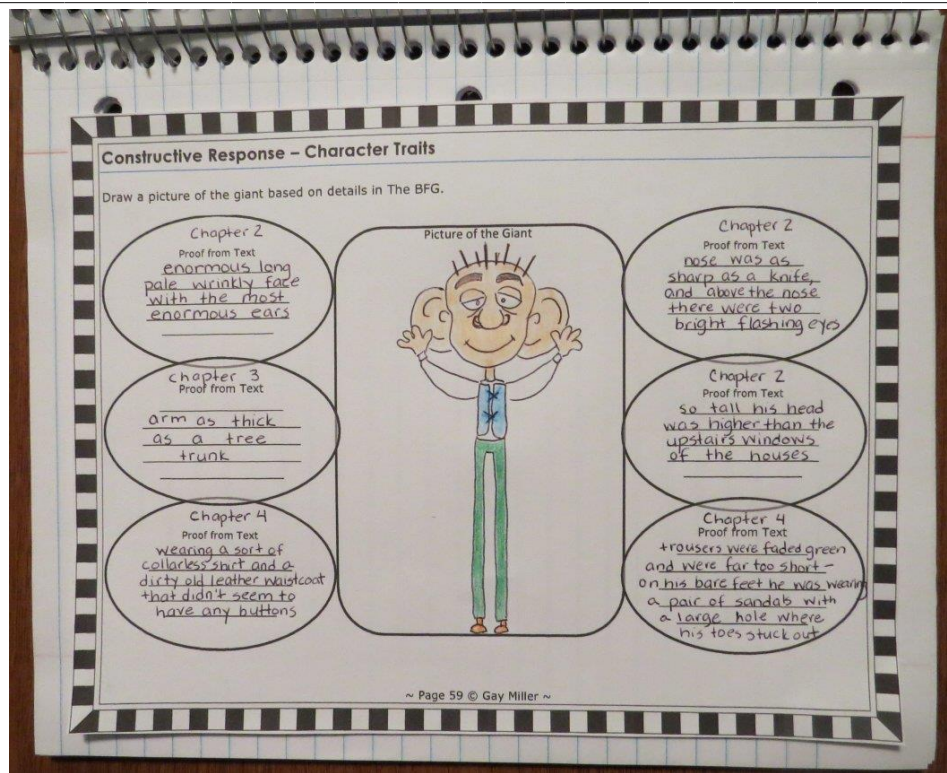 Constructive Response – Character Traits
Draw a picture of the giant based on details in The BFG.
Chapter 2
Proof from Text
enormous long
pale wrinkly face
with the most
enormous ears
chapter 3
Proof from Text
arm as thick
as a tree
trunk
Chapter 4
Proof from Text
wearing a sort of
collarless shirt and a
dirty old leather waistcoat
that didn't seem to
have any buttons
Picture of the Giant
Chapter 2
Proof from Text
nose was as
sharp as a knife,
and above the nose
there were two
bright flashing eyes
Chapter 2
Proof from Text
so tall his head
was higher than the
upstairs windows
of the houses
Chapter 4
Proof from Text
trousers were faded green
and were far too short –
on his bare feet he was wearing
a pair of sandals with
a large hole where
his toes stuck out
~ Page 59 © Gay Miller ~